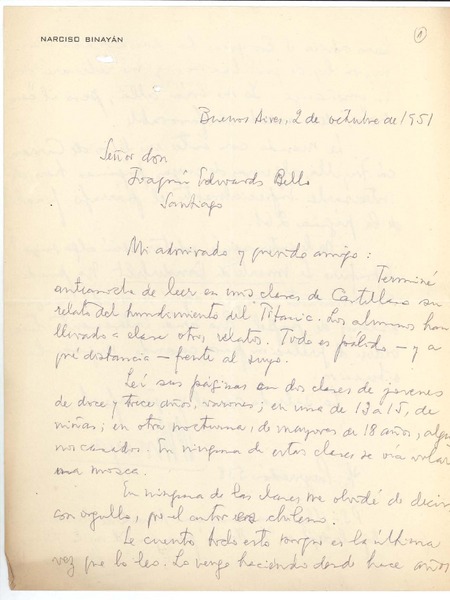 NARCISO BINAYÁN
1
Buenos Aires, 2 de octubre de 1951
Señor don
Joaquín Edwards Bello
Santiago
Mi admirado y querido amigo:
Terminé
anteanoche de leer en mis clases de Castellano su
relato del hundimiento del Titanic. Los alumnos han
llevado a clase otros relatos. Todo es pálido — y a
qué distancia — frente al suyo.
Leí sus páginas en dos clases de jóvenes
de doce y trece años, varones; en una de 13 a 15, de
niñas; en otra nocturna, de mayores de 18 años, algu
nos casados. En ninguna de estas clases se oía volar
una mosca.
En ninguna de las clases me olvidé de decir
con orgullo, que el autor es chileno.
Le cuento todo esto porque es la última
vez que lo leo. Lo vengo haciendo desde hace años